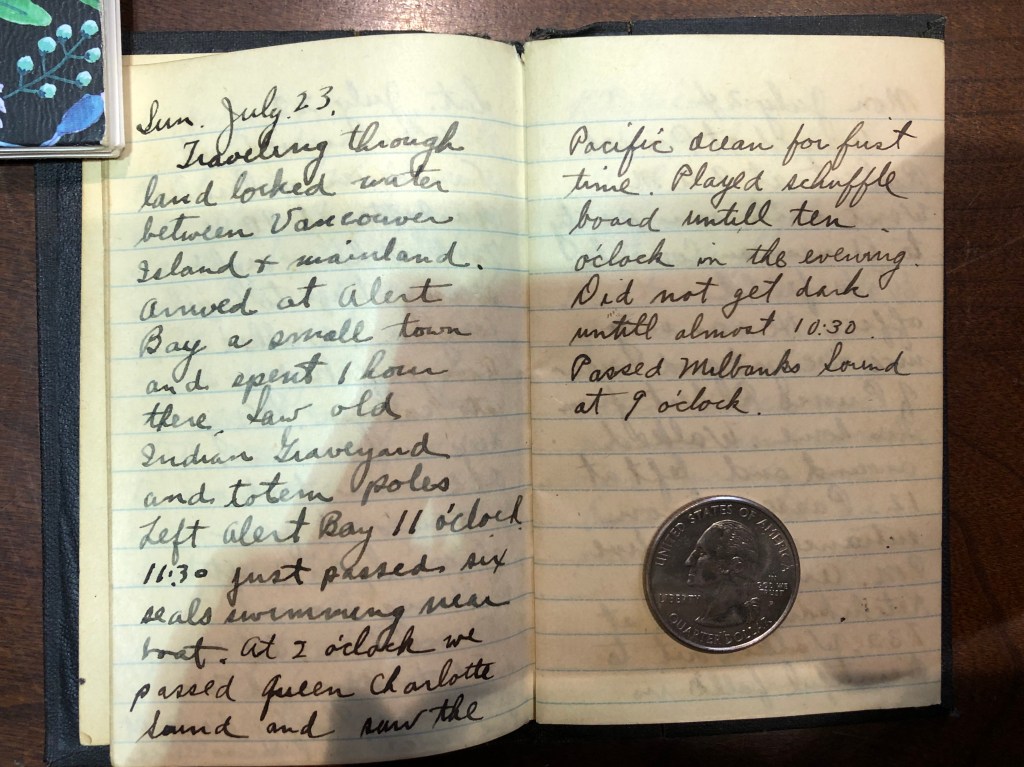 Sun. July 23.
Traveling through
land locked water
between Vancouver
Island & mainland.
Arrived at Alert
Bay a small town
and spent 1 hour
there. Saw old
Indian Graveyard
and totem poles
Left Alert Bay 11 o'clock
11:30 just passed six
seals swimming near
boat. At 2 o'clock we
passed Queen Charlotte
Sound and saw the
Pacific ocean for first
time. Played schuffle
board untill ten
o'clock in the evening.
Did not get dark
untill almost 10:30
Passed Milbanks Sound
at 9 o'clock.
UNITED STATES OF AMERICA
LIBERTY
IN GOD WE TRUST
QUARTER DOLLAR